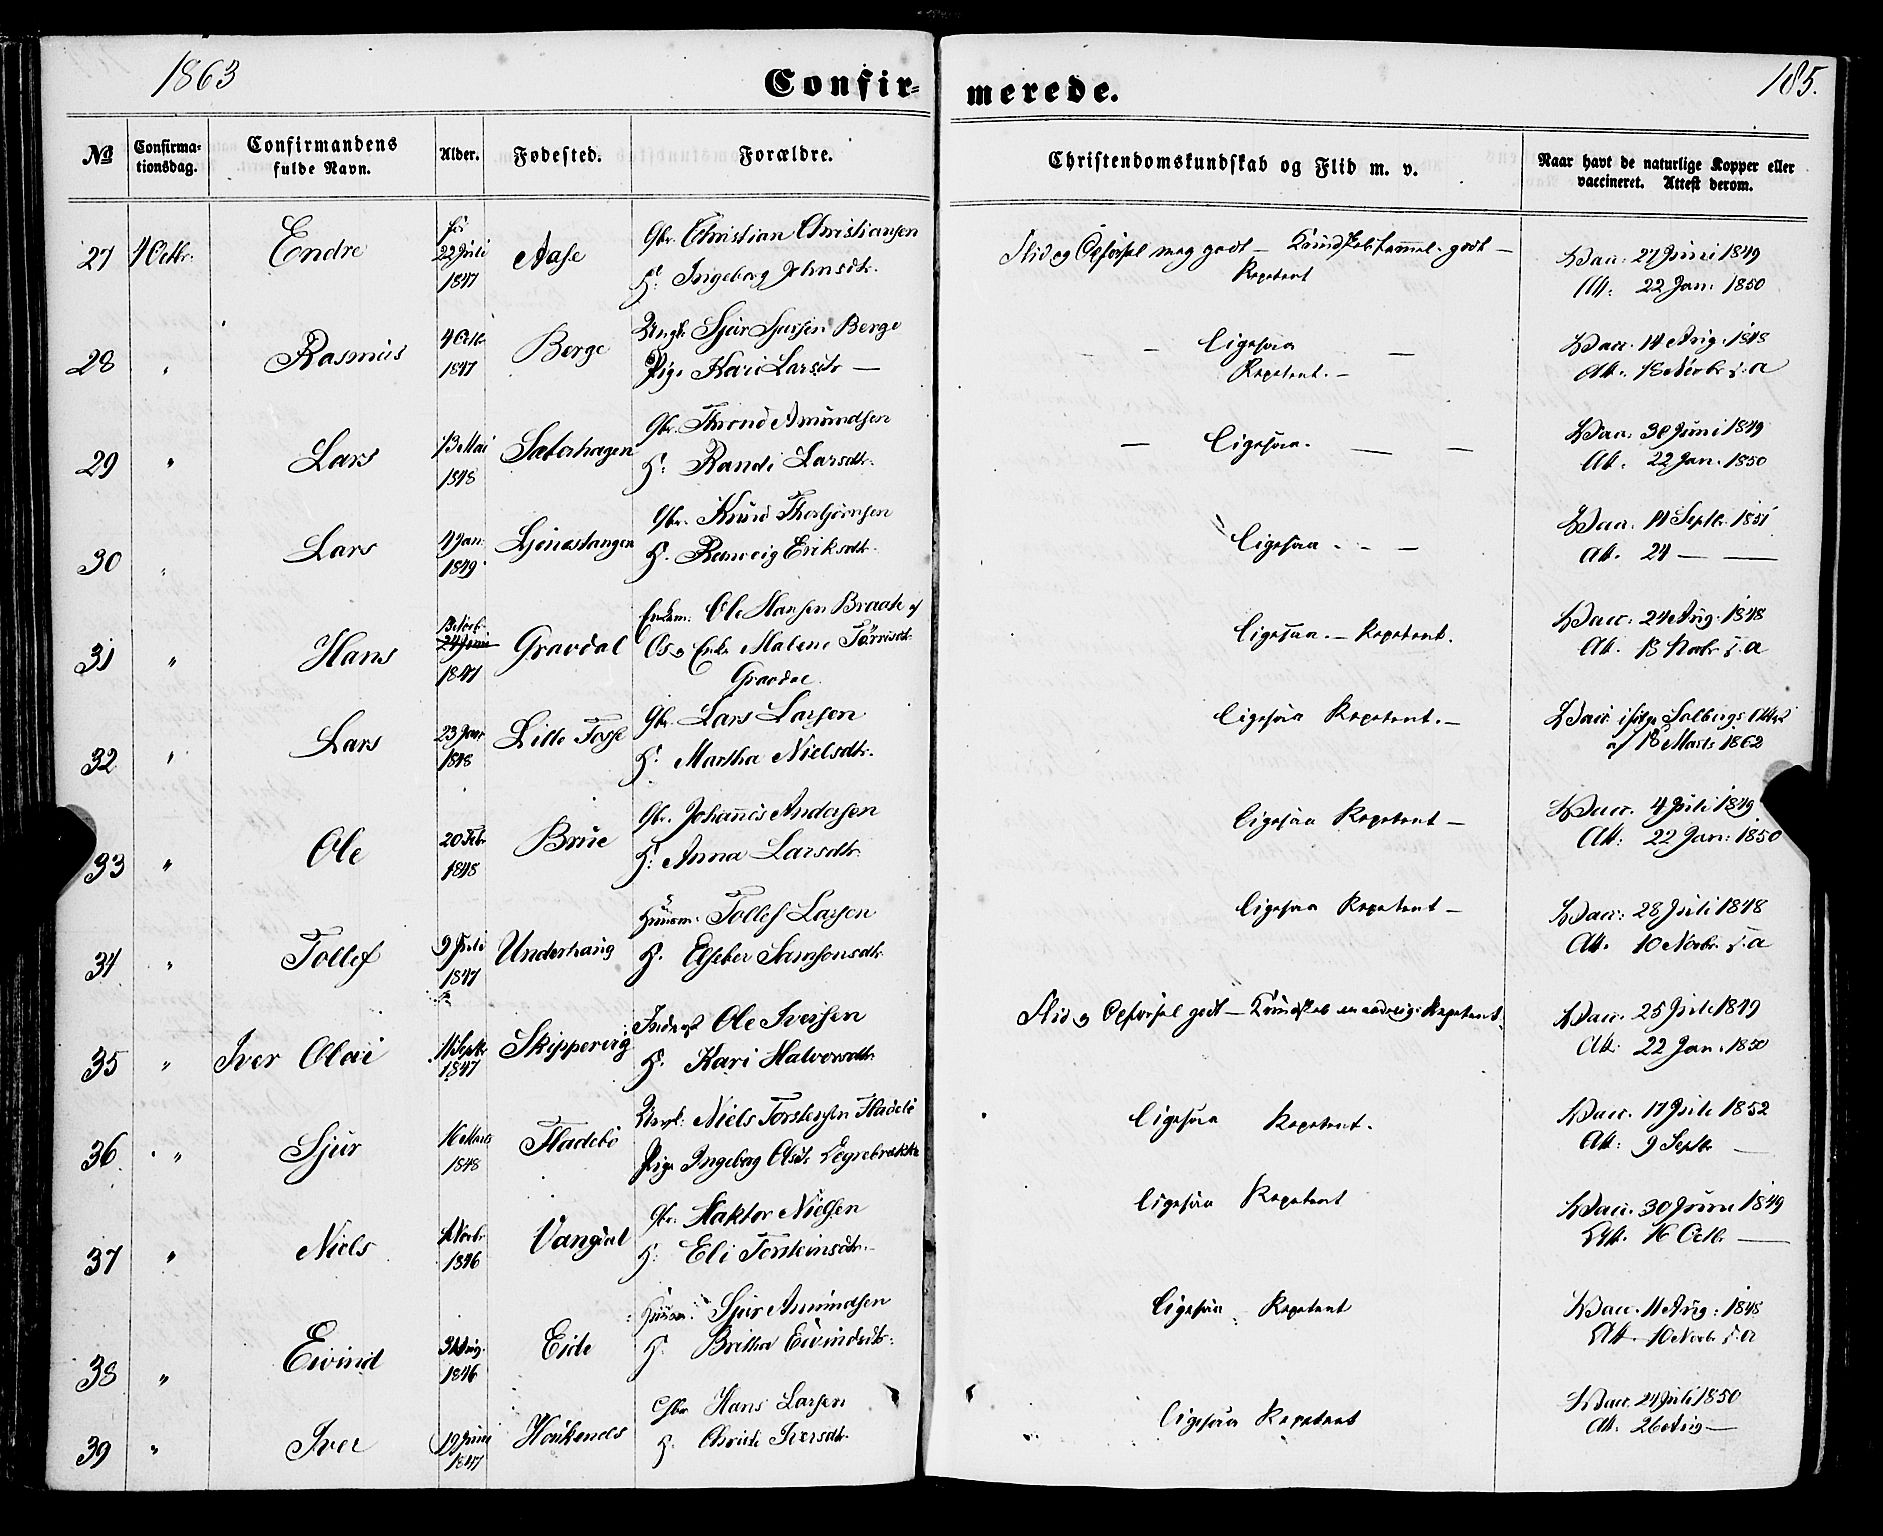 1863
Confir-
merede.
185.
№
Confirma-
tionsdag.
Confirmandens
fulde Navn.
Alder.
Fødested.
Forældre.
Christendomskundskab og Flid m. v.
Naar havt de naturlige Kopper eller
vaccineret. Attest derom.
27 4 Octbr. Endre
22 Juli
1847
Aase
Gbr. Christian Christiansen
H. Ingeborg Johnsdtr.
Flid og Opførsel meg godt — Kundskab temmel. godt —
Repetent
Vacc. 27 Juni 1849
Att. 22 Jan: 1850
28 " Rasmus
4 Octb.
1847
Berge
Ungk. Sjur Sjursen Berge
Pige Kari Larsdtr —
— — Ligesaa —
Repetent. —
Vacc. 14 Aug. 1848
Att. 18 Novbr s.a
29 " Lars
13 Mai
1848
Sæterhagen
Gbr. Thrond Amundsen
H. Randi Larsdtr.
— Ligesaa. — —
Vacc. 30 Juni 1849
Att. 22 Jan. 1850
30 " Lars
4 Jan.
1849
Ljonestangen
Gbr. Knud Thorbjørnsen
H. Ranveig Eriksdtr.
Ligesaa - - —
Vacc. 14 Septb. 1851
Att. 24 — —
31 " Hans
24 Juni
1847
Gravdal
Enkem. Ole Hansen Braate af
Os og Enke Malene
Gravdal.
Ligesaa. — Repetent.
Vacc. 24 Aug. 1848
Att. 18 Novbr s.a
32 " Lars
23 Janr
1848
Lille Fosse
Gbr. Lars Larsen
H. Martha Nielsdtr.
Ligesaa Repetent. —
Vacc. ifølge Solbergs Attest
af 18 Marts 1862
33 " Ole
20 Febr
1848
Brue
Gbr. Johannes Andersen
H. Anna Larsdtr.
Ligesaa Repetent —
Vacc. 4 Juli 1849
Att. 22 Jan: 1850
34 " Tollef
9 Juli
1847
Underhaug
Huusm. Tollef Larsen
H. Elseber Samsonsdtr.
Ligesaa Repetent —
Vacc: 28 Juli 1848
Att. 10 Novbr. s.a
35 " Iver Olai
11 Septb
1847
Skippervig
Inderst Ole Iversen
H. Kari Halvorsdtr.
Flid og Opførsel godt — Kundskab maadelig Repetent.
Vacc. 25 Juli 1849
Att. 22 Jan. 1850
36 " Sjur
16 Marts
1848
Fladebø
Ungk. Niels Torstensen Fladebø
Pige Ingeborg Olsdtr
Ligesaa Repetent.
Vacc. 17 Juli 1852
Att. 9 Septbr —
37 " Niels
Novbr
1846
Vangdal
Gbr. Haktor Nielsen
H. Eli Torsteinsdtr. —
Ligesaa Repetent
Vacc. 30 Juni 1849
Att. 16 Octb. —
38 " Eivind
Aug.
1846
Eide
Huusm. Sjur Amundsen
H. Britha Eivindsdtr.
Ligesaa Repetent
Vacc. 11 Aug. 1848
Att. 10 Novbr. s.a
39 " Iver
19 Juni
1847
Haukenæs
Gbr. Hans Larsen
H. Christi Iversdtr.
Ligesaa Repetent
Vacc. 24 Juli 1850
Att. 26 Aug —